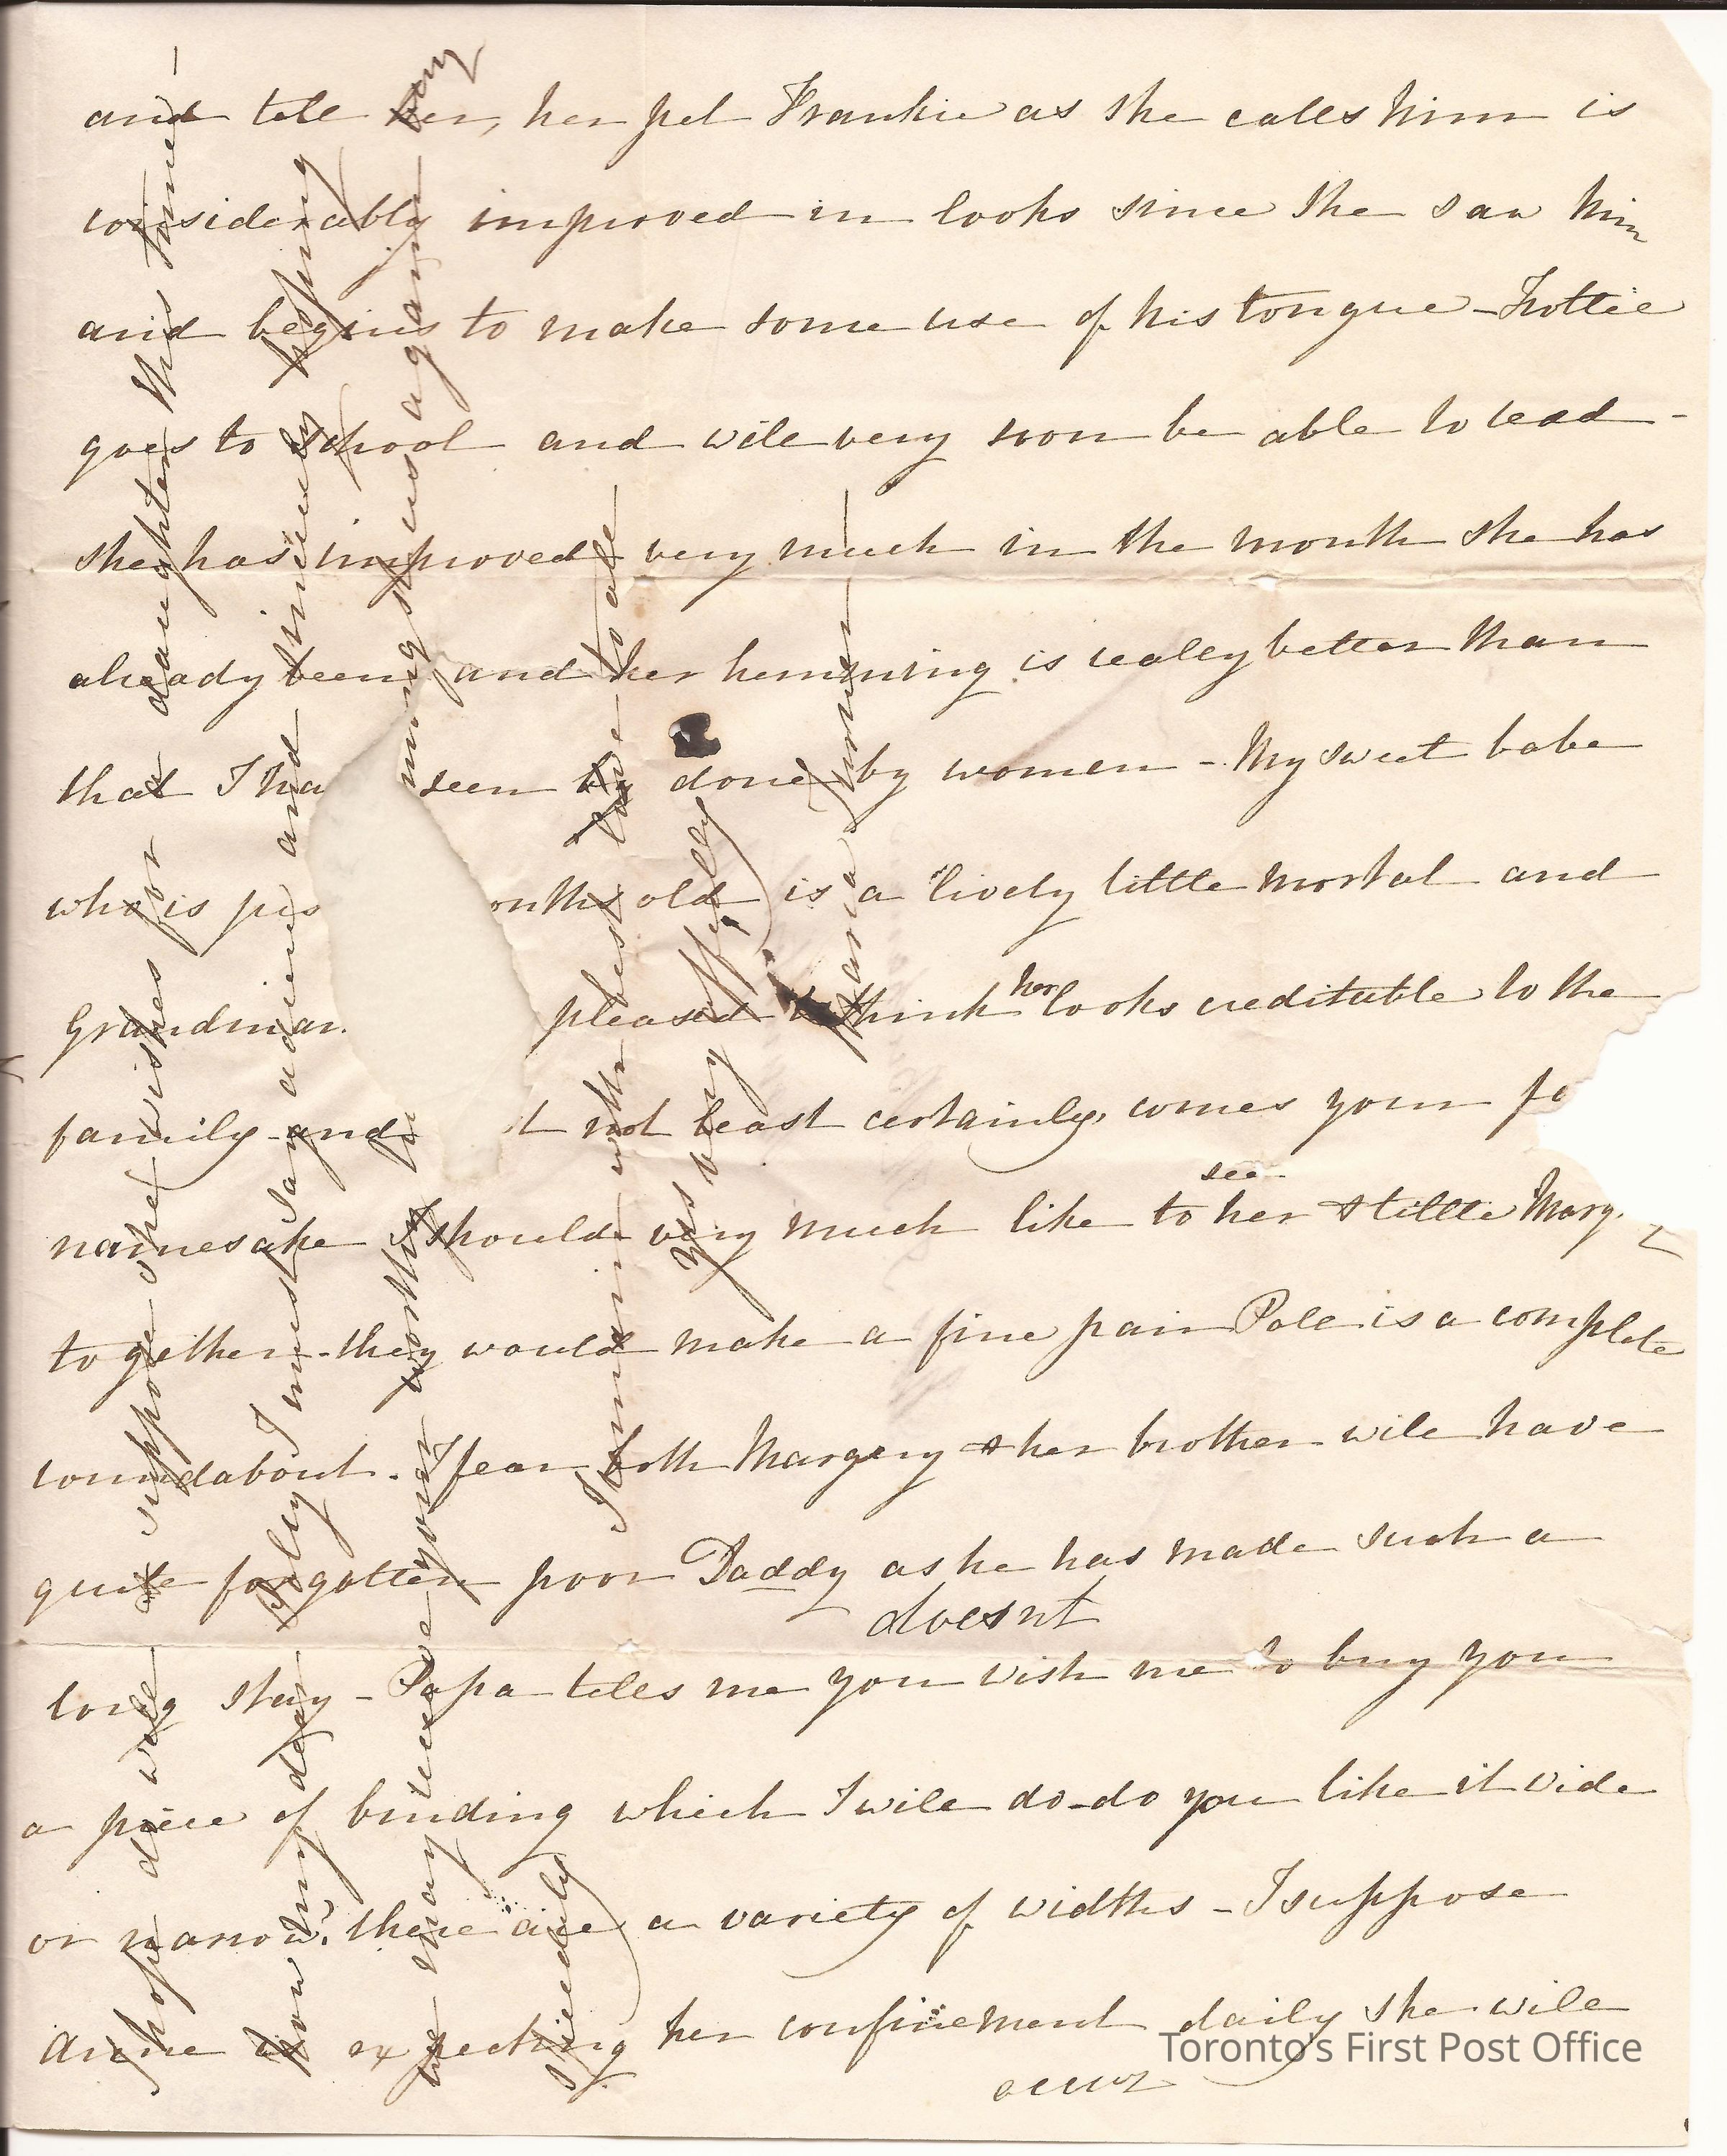 and tell her, her pet Frankie as she calls him is
considerably improved in looks since she saw him
and begins to make some use of his tongue - Tottie
goes to school and will very soon be able to read -
she has improved very much in the month she has
already been and her hemming is really better than
that I ha seen by done by women - My sweet babe
who is jus onths old is a lively little mortal and
Grandmar. pleased to think her looks creditable to the
family - and t not least certainly, comes your fo
namesake I should very much like to see her & little Marg.
together - they would make a fine pair Poll is a complete
roundabout. I fear both Margery & her brother will have
quite forgotten poor Daddy as he has made such a
long stay - Papa tells me you wish me to buy you
doesnt
a piece of binding which I will do - do you like it wide
or narrow? there are a variety of widths - I suppose
Anne is expecting her confinement daily she will
occur
I hope d will suppose she wishes for a daughter this time -
now my dear I must say adieu and sincerely hoping
we may receive your worthy amongst us again
speedily
I remain with best love to all
yrs very affcly
Maria
Toronto's First Post Office